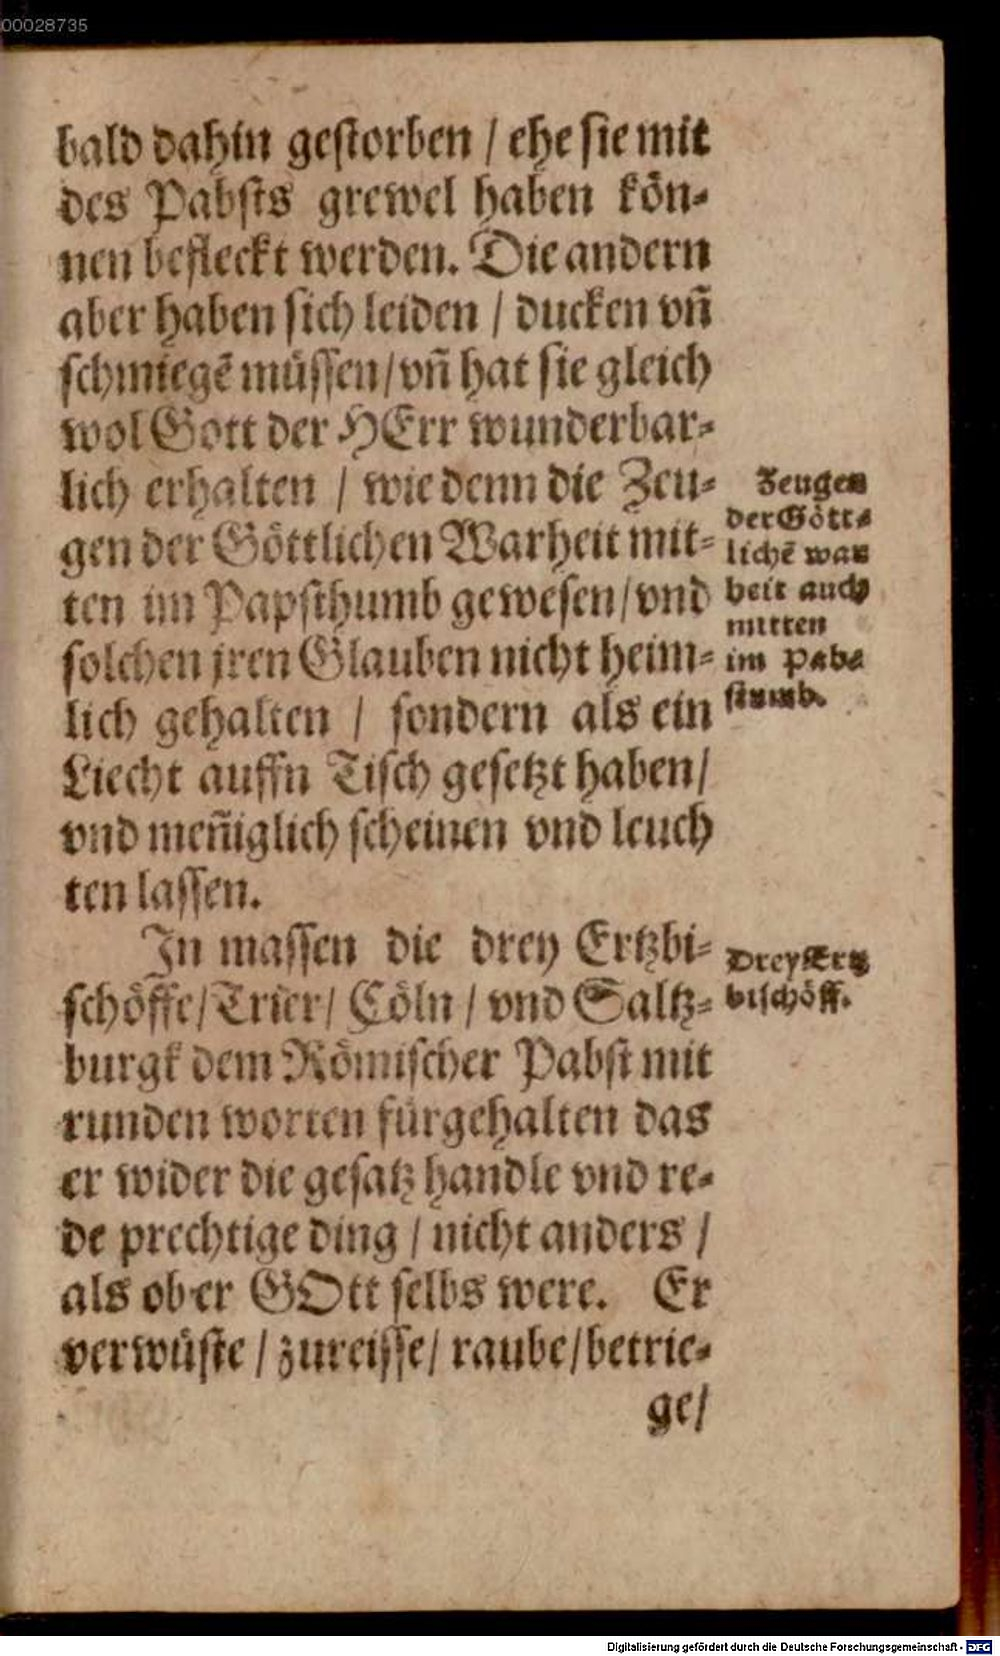 00028735
bald dahin gestorben / ehe sie mit
des Pabsts grewel haben kön-
nen befleckt werden. Die andern
aber haben sich leiden / ducken vñ
schmiegẽ müssen/vñ hat sie gleich
wol Gott der HErr wunderbar-
lich erhalten / wie denn die Zeu-
gen der Göttlichen Warheit mit-
ten im Papsthumb gewesen/vnd
solchen jren Glauben nicht heim-
lich gehalten / sondern als ein
Liecht auffn Tisch gesetzt haben/
vnd meñiglich scheinen vnd leuch
ten lassen.
Zeugen
der Gött-
lichẽ war
heit auch
mitten
im Pab-
stumb.
In massen die drey Ertzbi-
schöffe/Trier/ Cöln / vnd Saltz-
burgk dem Römischer Pabst mit
runden worten fürgehalten das
er wider die gesatz handle vnd re-
de prechtige ding / nicht anders /
als ob er GOtt selbs were. Er
verwüste / zureisse/ raube/betrie-
ge/
Drey Ertz
bischöff.
Digitalisierung gefördert durch die Deutsche Forschungsgemeinschaft - DFG